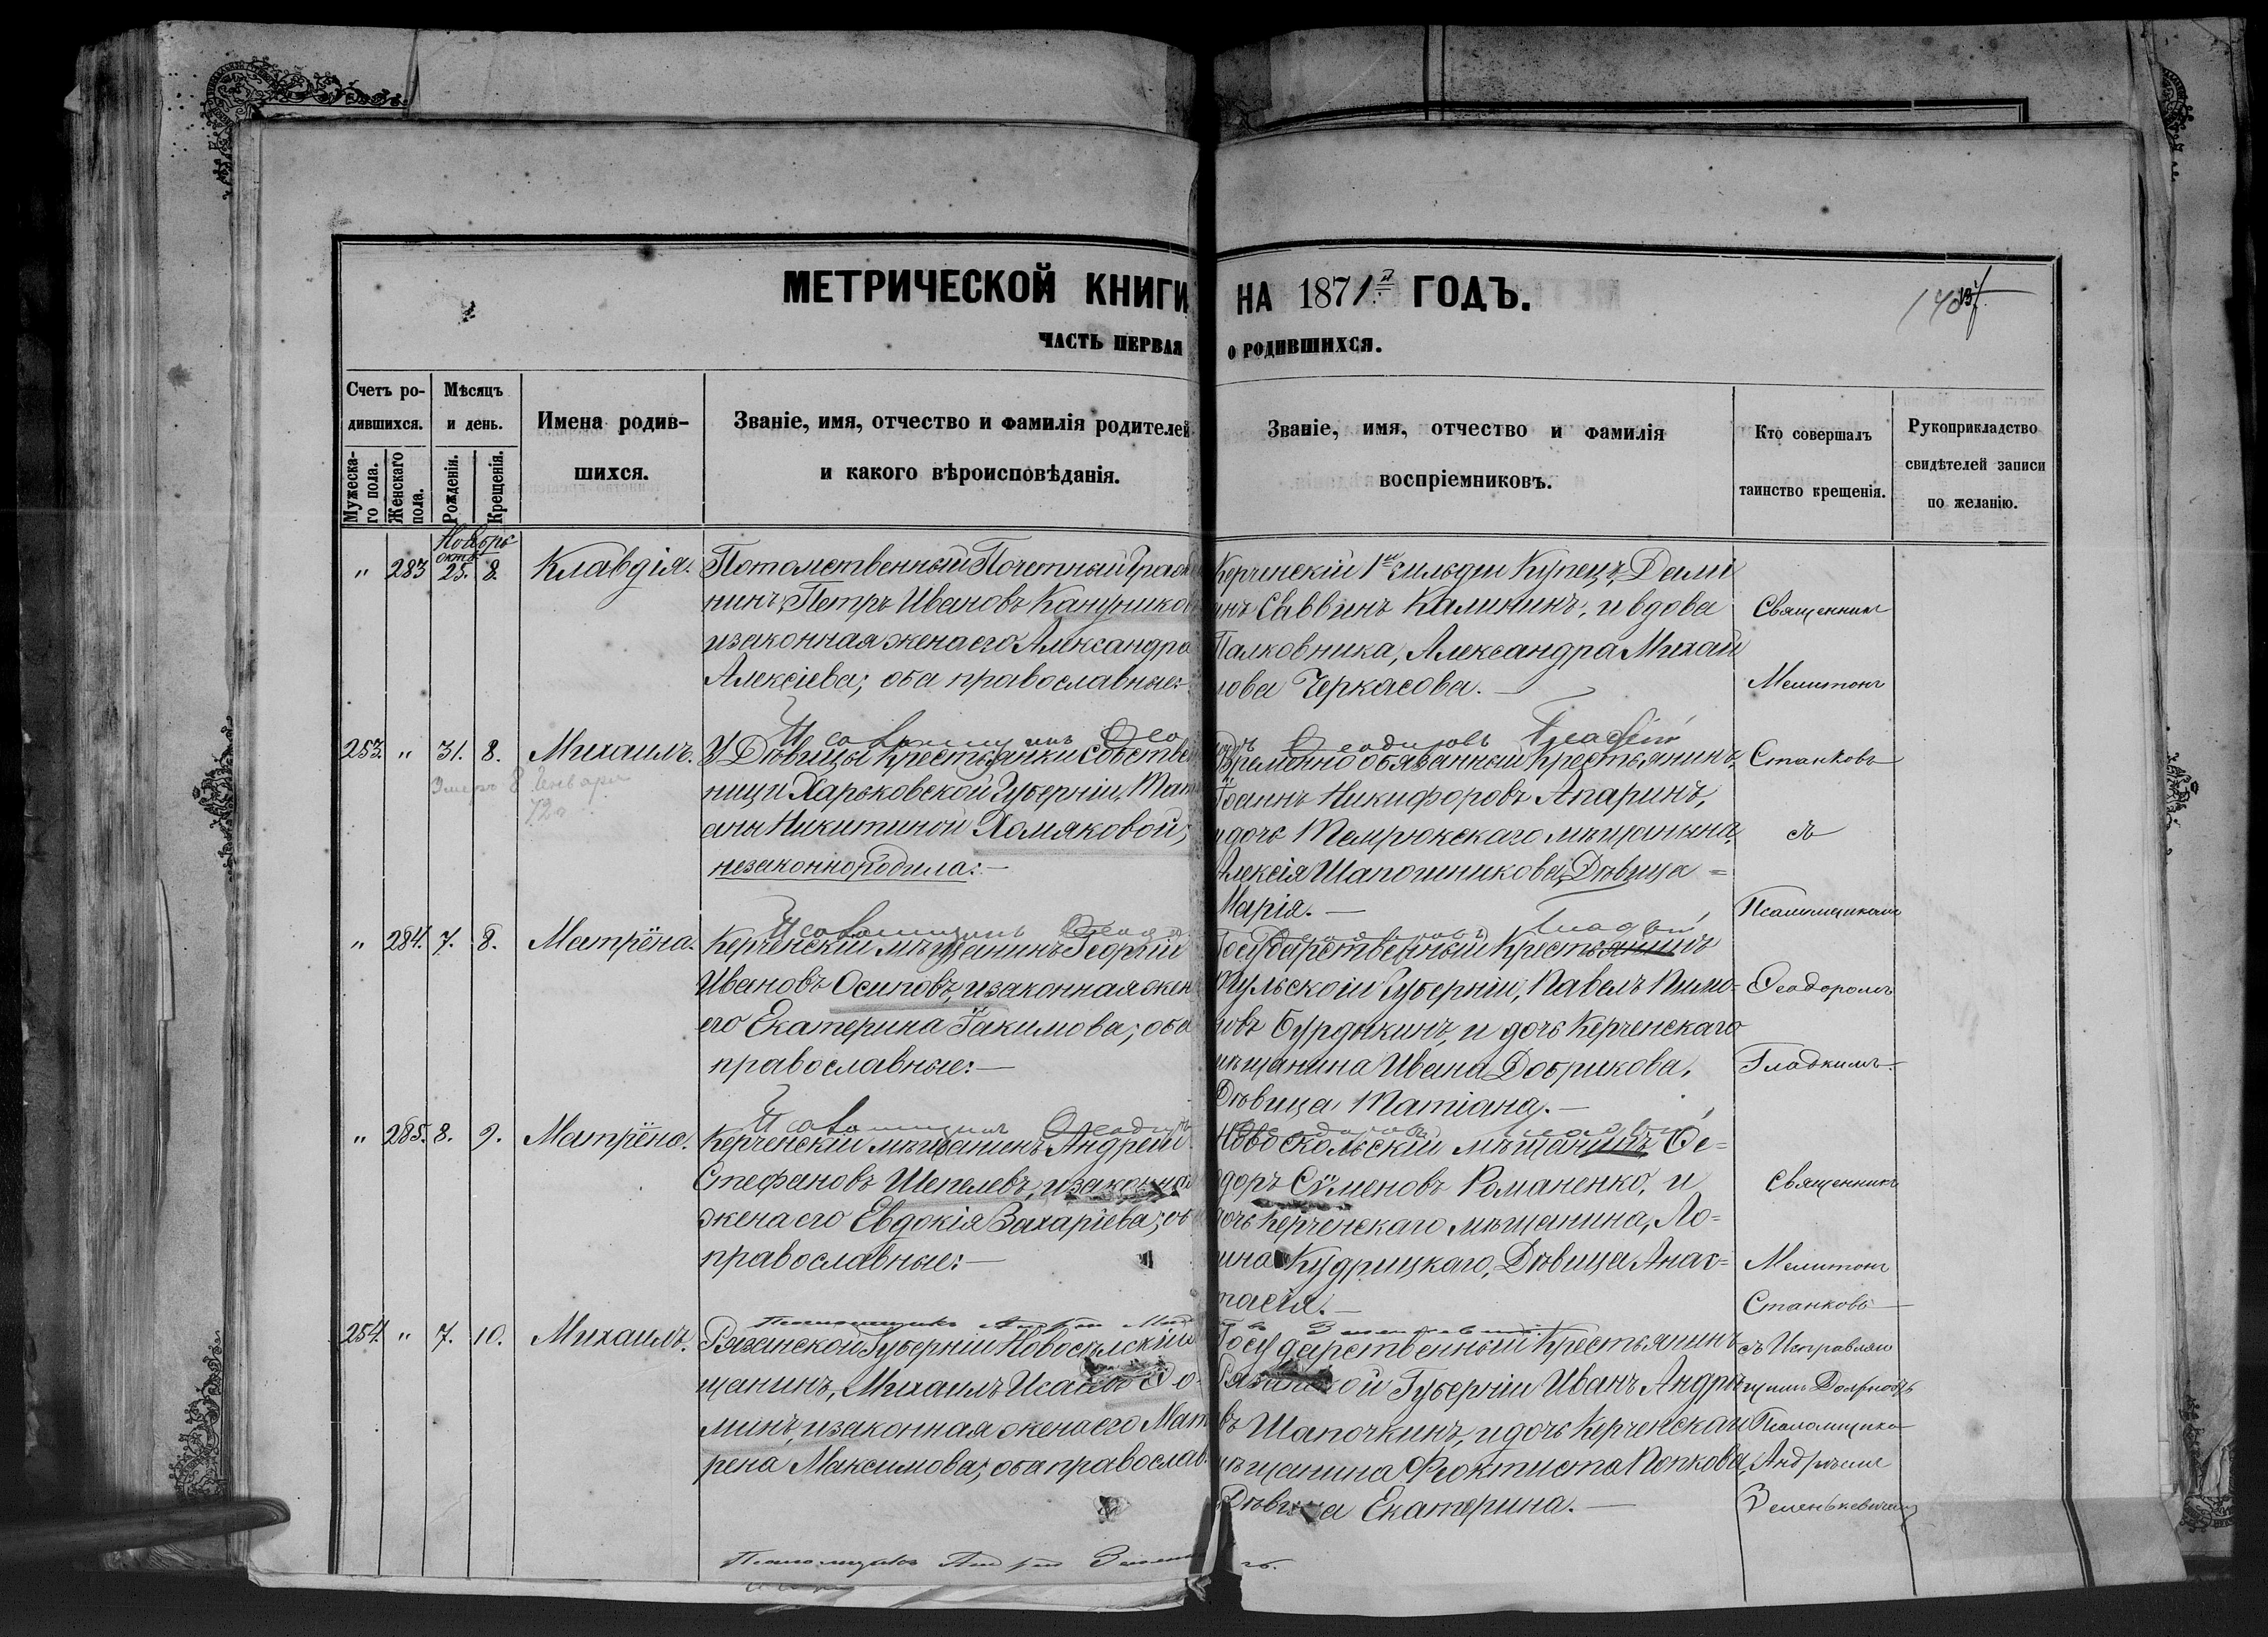 МЕТРИЧЕСКОЙ КНИГИ НА 1871й ГОДЪ.
ЧАСТЬ ПЕРВАЯ О РОДИВШИХСЯ.
Счетъ ро-
дившихся.
Мужеска-
го пола.
Женскаго
пола.
Мѣсяцъ
и день.
Рожденія.
Крещенія.
Имена родив-
шихся.
Званіе, имя, отчество и фамилія родителей
и какого вѣроисповѣданія.
Званіе, имя, отчество и фамилія
воспріемниковъ.
Кто совершалъ
таинство крещенія.
Рукоприкладство
свидѣтелей записи
по желанію.
Ноябрь
окт.
" 283 25. 8. Клавдія.
Потомственный Почетный Граж
нинъ, Петръ Ивановъ Канунников
и законная жена его Александра
Алексіева; оба православные:-
Керченскій 1й гильдіи Купецъ, Дами
анъ Саввинъ Калининъ, и вдова
Палковника, Александра Михай
лова Черкасова.—
Священник
Мелитонъ
Псаломщикъ Ѳео
253. " 31. 8. Михаилъ.
Умеръ 8 Января
72 г.
У Дѣвицы Крестьянки Собствен
ницы Харьковской Губерніи, Тат
аны Никитиной Хомяковой,
незаконнородила:—
Временно обязанный Крестьянинъ,
Іоаннъ Никифоровъ Апаринъ,
и дочь Темрюкскаго мѣщанина,
Алексія Шапошникова, Дѣвица =
Марія.—
Станковъ
съ
Псаломщикомъ
Псаломщикъ
" 284. 7. 8. Матрёна.
Керченскій мѣщанинъ Георгій
Ивановъ Осиповъ, и законная жен
его Екатерина Іакимова; оба
православные:—
Государственный Крестьянинъ
Тульской Губерніи, Павелъ Пимо-
новъ Бурдыкинъ, и дочь Керченскаго
мѣщанина Ивана Добрикова,
Дѣвица, Татіана.—
Ѳеодоромъ
Гладкимъ.
Псаломщикъ Ѳеодоръ
" 285. 8. 9. Матрёна.
Керченскій мѣщанинъ Андрей
Стефановъ Шепелевъ, и законна
жена его Евдокія Захаріева; об
православные:—
Новоскольскій мѣщанинъ Ѳе=
доръ Сѵменовъ Романенко, и
дочь Керченскаго мѣщанина, Ло=
Кудрицкаго, Дѣвица Анас=
тасія.—
Священникъ
Мелитонъ
Станковъ
Псаломщикъ Андрей
254. " 7. 10. Михаилъ.
Рязанской Губерніи
щанинъ, Михаилъ
минъ, и законная жена его Мат
рена Максимова; оба православ.
Государственный Крестьянинъ
Рязанской Губерніи Иванъ Андре
въ Шапочкинъ, и дочь Керченскаг
мѣщанина Ѳеоктиста Попкова,
Дѣвица Екатерина.—
съ Исправляю
щимъ Должность
Псаломщика
Андреемъ
Зеленькевичемъ
Псаломщикъ Андрей